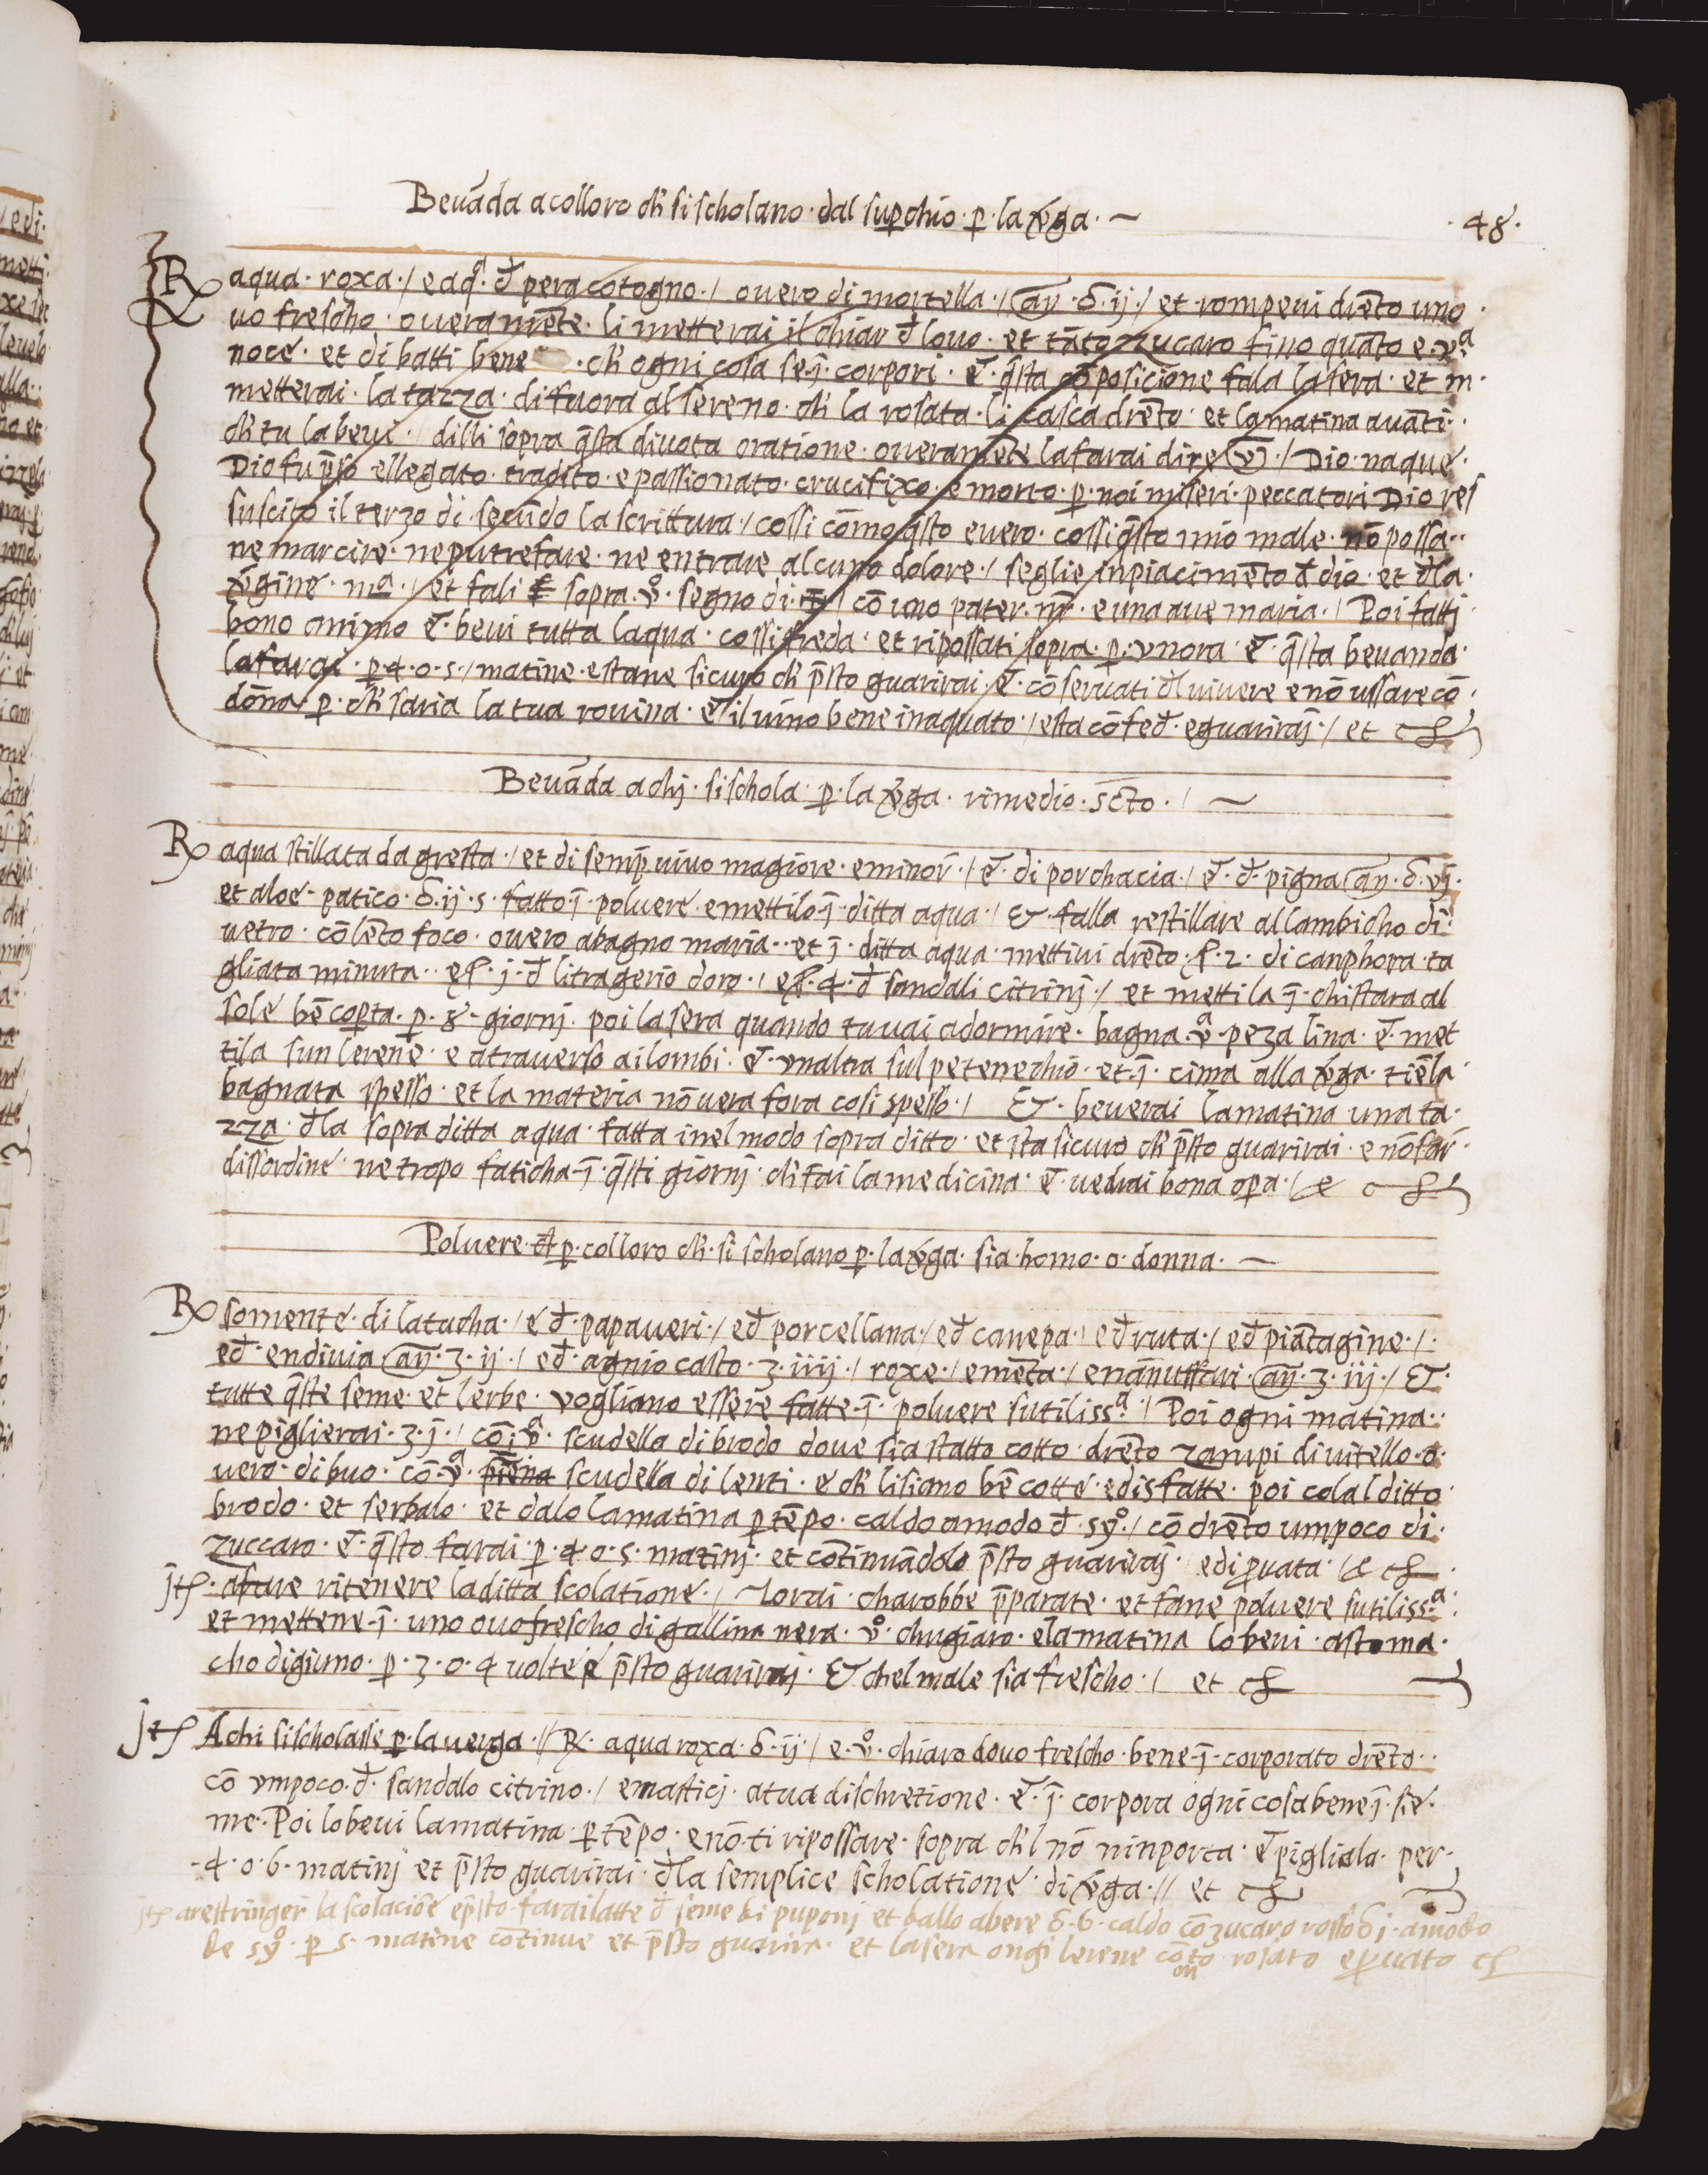 Beuāda a colloro ch' si scholano · dal sup̱chio · p̱ · la v̄ga · ~
· 48 ·
℞ aqua · roxa · / e aqᵃ · đ pera cotogno · / ouero di mortella · / an̄ · δ · ij · / et · rompeui drēto uno ·
uo frescho · ouueramēte · li metterai il chiar đ louo · et tāto zucaro fino quāto e · vᵃ
noce · et di batti bene · ch' ogni cosa se · ī · corpori · et · q̄sta cō posicione fala la sera · et m ·
metterai · la tazza · di fuora al sereno · ch' la rosata · li casca drēto · et la matina auāti ·
ch' tu la beui · / dilli sopra q̄sta diuota oratione · oueramēte la farai dire (v̄) · / Dio · naque ·
Dio fu p̄so e llegato · tradito · e passionato · crucifixo · e morto · p̱ · noi miseri · peccatori Dio res
suscito il terzo di · secūdo la scrittura · / cossi cōmo q̄sto e uero · cossi q̄sto mio male · nō possa ··
ne marcire · ne putrefare · ne entrare alcuno dolore · / se glie in piacimēto đ dio · et đla ·
v̄gine · mᵃ · / et fali sopra · vº · segno di · ✝ / cō uno pater · nr̄ · e una aue maria · / Poi fatti
bono animo et · beui tutta laqua · cossi freda · et ripossati sopra · p̱ · vnora · et · q̄sta beuanda ·
la farai · p̱ · 4 · o · 5 · / matine · e stane sicuro ch' p̄sto guarirai · et · cōseruati đl uiuere e nō ussare cō ·
dōna · p̱ · ch' saria la tua rouina · et il uino bene inaquato · / e sta cō feđ · e guariraj · / et
Beuāda a chj · si schola · p̱ · la v̄ga · rimedio · sc̄to · / ~
℞ aqua stillata da gresta · / et di semp̱ uiuo magiore · e minor̄ · / et · di porchacia · / et · đ · pigna an̄ · δ · vj ·
et aloe · patico · δ · ij · s · fatto · ī · poluere · e mettilo · ī · ditta aqua · / et · falla restillare al lambicho di ·
uetro · cō lēto foco · ouero a bagno maria ·· et ī · ditta aqua · mettiui drēto · 2 · di canphora · ta
gliata minuta ·· e · j · đ litragerio doro · / e · 4 · đ sandali citrinj · / et metti la ī · chistara al
sole bē cop̱ta · p̱ · 8 · giornj · poi la sera quando tu uai a dormire · bagna · vᵃ · peza lina · et · met
tila sun lerene · e atrauerso ai lombi · et · vnaltra sul petenechio · et · ī · cima alla v̄ga · tiēla ·
bagnata spesso · et la materia nō uera fora cosi spesso · / et · beuerai la matina una ta ·
zza · đla sopra ditta aqua · fatta inel modo sopra ditto · et sta sicuro ch' p̄sto guarirai · e nō far ·
dissordine · ne tropo faticha · ī · q̄sti giornj · ch' fai la medicina · et · uedrai bona op̱a · / et
Poluere · p̱ · colloro ch' · si scholano p̱ · la v̄ga · sia · homo · o · donna · ~
℞ somente · di latucha · / e đ · papaueri · / e đ porcellana · / e đ canepa · / e đ ruta · / e đ piātagine · / ·
e đ · endiuia an̄ · ʒ · ij · / e đ · agnio casto · ʒ · iiij · / roxe · / e mēta · / e an̄ · ʒ · iij · / et ·
tutte q̄ste seme · et lerbe · vogliano essere fatte · ī · poluere sutilissᵃ · / Poi ogni matina ··
ne piglierai · ʒ · j · / cō · vᵃ · scudella di brodo doue sia statto cotto · drēto zampi di uitello · o ·
uero · di buo · cō · vᵃ · piena scudella di lenti · e ch' li siano bē cotte · e disfatte · poi cola l ditto ·
brodo · et serbalo · et dalo la matina p̱ tēpo · caldo a modo đ · syº · / cō drēto umpoco di ·
zuccaro · et · q̄sto farai · p̱ · 4 · o · 5 · matinj · et cōtinuādolo p̄sto guariraj · / e di p̱uata · / et
jtt · a fare ritenere la ditta scolatione · / Torai · charobbe p̄parate · et fane poluere sutilissᵃ ·
et mettene · ī · uno ouo frescho di gallina nera · vº · chugiaro · e la matina lo beui · a stoma ·
cho digiuno · p̱ · 3 · o · 4 uolte p̄sto guariraj · et chel male sia frescho · / et
jtt A chi si scholasse p̱ · la uerga · // ℞ · aqua roxa · δ · ij / e · vº · chiaro douo frescho · bene · ī · corporato drēto ··
cō vmpoco · đ · sandalo citrino · / e masticj · a tua dischretione · et · ī · corpora ogni cosa bene ī · sie ·
me · Poi lo beui la matina · p̱ tēpo · e nō · ti ripossare · sopra ch'l nō ninporta · et pigliala · per ·
· 4 · o · 6 · matinj et p̄sto guarirai · đla semplice scholatione · di v̄ga · // et
jtt a restringer la scolaciōe e p̄sto · farai latte đ seme di puponj et dallo a bere δ · 6 · caldo cō zucaro rosso δ j · a modo
de syº · p̱ 5 · matine cōtinue et p̄sto guarira · et la sera ongi lerene cō ōnto rosato e p̱uato